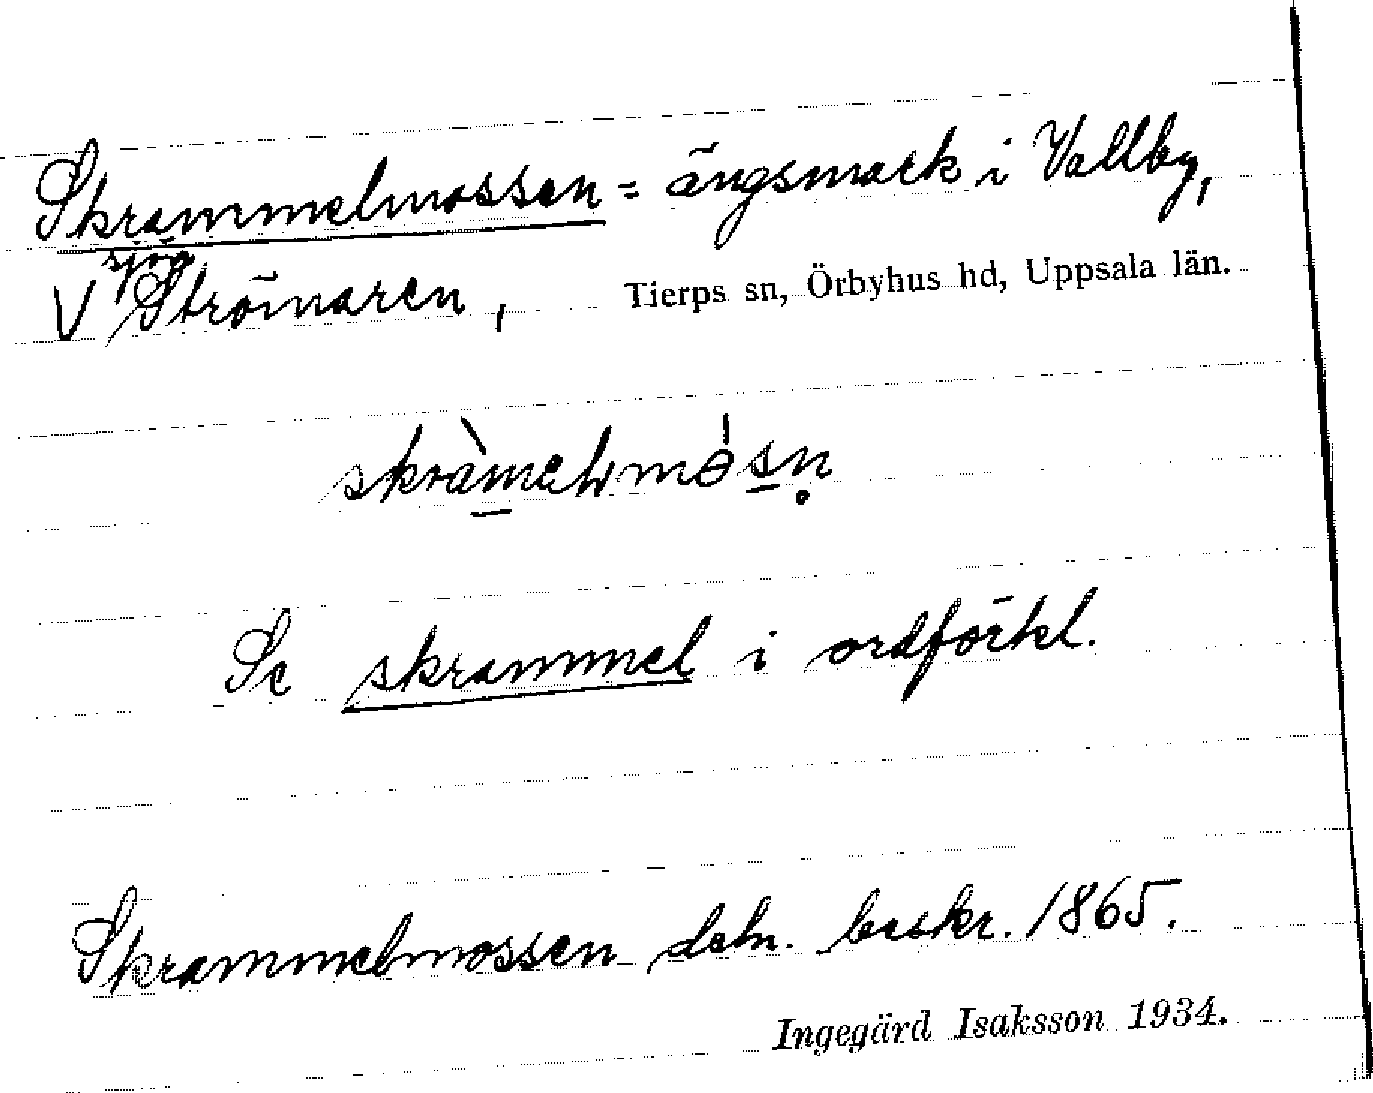 Skrammelmossen = ängsmark i Vallby,
V sjön Strömaren, Tierps sn, Örbyhus hd, Uppsala län.
Se skrammel i ordförkl.
Skrammelmossen deln. beskr. 1865.
Ingegärd Isaksson 1934.